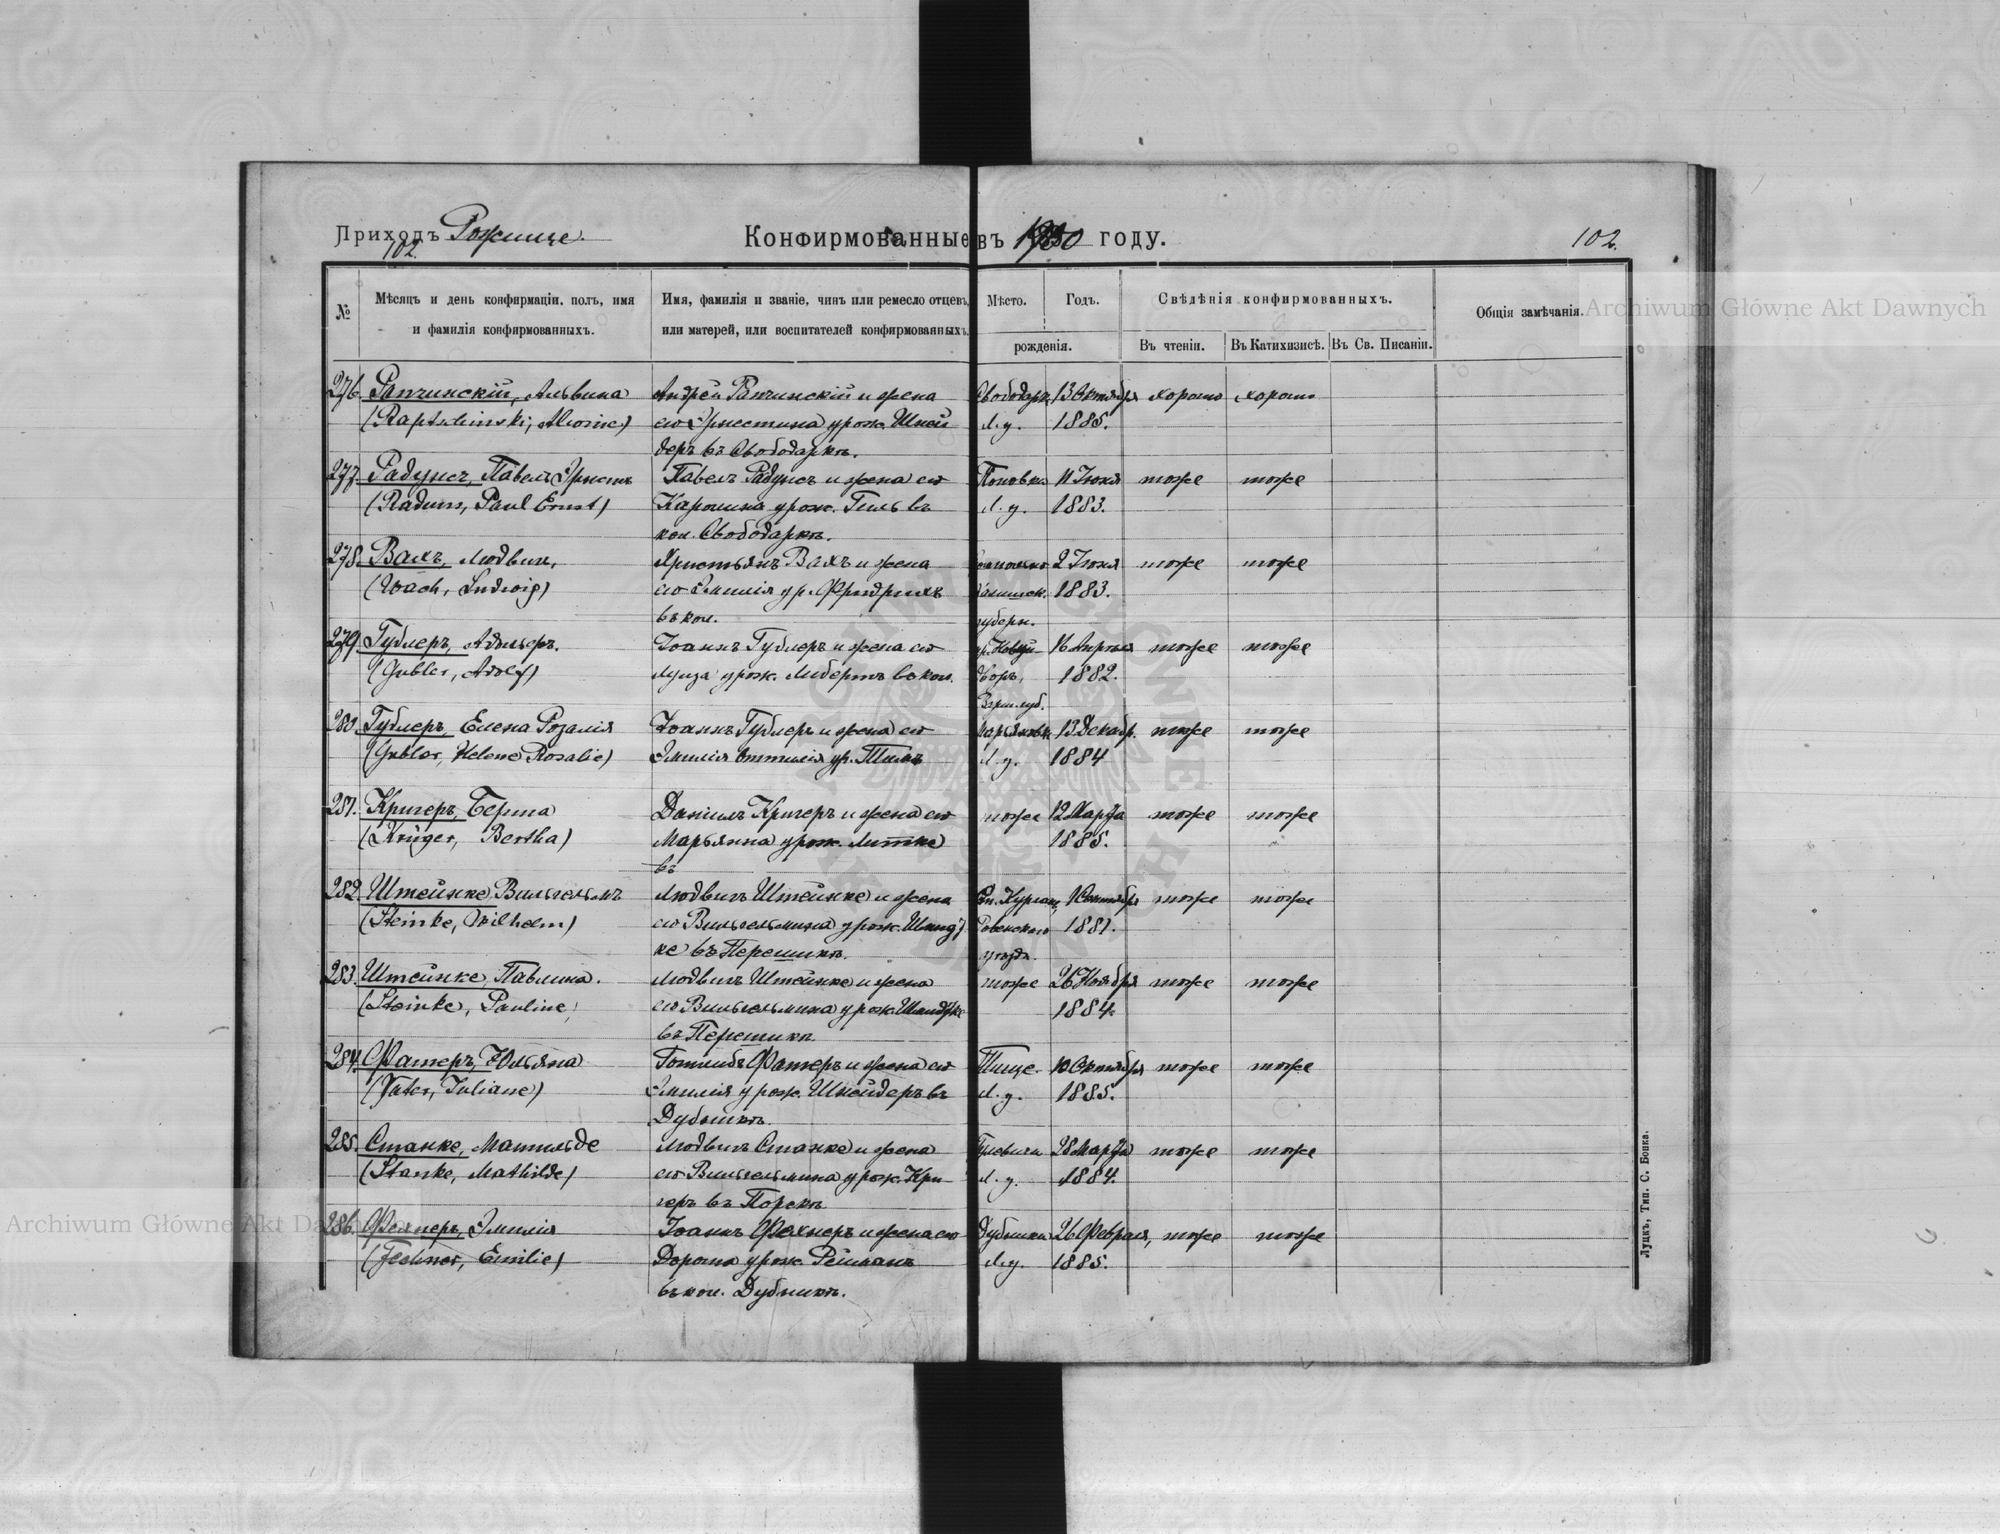 Приходъ Рожище.
Конфирмованные въ 1900 году.
102.
102.
№
Мѣсяцъ и день конфирмаціи, полъ, имя
и фамилія конфирмованныхъ.
Имя, фамилія и званіе, чинъ или ремесло отцевъ,
или матерей, или воспитателей конфирмованныхъ.
Мѣсто.
Годъ.
рожденія.
Свѣдѣнія конфирмованныхъ.
Въ чтеніи.
Въ Катихизисѣ.
Въ Св. Писаніи.
Общія замѣчанія.
276. Рапчинскій, Альвина Андрей Рапчинскій и жена 13 Октября хорошо хорошо
его Эрнестина урож. Шней Л. у. 1885.
деръ въ Свободаркѣ.
277. Радунсъ, Павелъ Эрнстъ Павелъ Радунсъ и жена его 11 Іюня тоже тоже
(Raduns, Paul Ernst) Каролина урож. Гиль въ Л. у. 1883.
кол. Свободаркѣ.
278. Вахъ, Людвигъ, Христьянъ Вахъ и жена 2 Іюня тоже тоже
(Wach, Ludwig) его Эмилія ур. Фридрихъ 1883.
въ кол. губерн.
279. Гублеръ, Адольфъ. Іоаннъ Гублеръ и жена его 16 Апрѣля тоже тоже
(Gubler, Adolf) Луиза урож. Либертъ въ кол. дворъ, 1882.
280. Гублеръ, Елена Розалія Іоаннъ Гублеръ и жена его 13 Декабр. тоже тоже
(Gubler, Helene Rosalie) Эмилія Оттилія ур. Л. у. 1884
281. Кригеръ, Берта Даніилъ Кригеръ и жена его тоже 12 Марта тоже тоже
(Krüger, Bertha) Марьянна урож. Литке 1885.
въ
282. Штейнке, Вильгельмъ Людвигъ Штейнке и жена тоже тоже
(Steinke, Wilhelm) его Вильгельмина урож. Ровенскаго 1881.
ке въ уѣзда.
283. Штейнке, Павлина. Людвигъ Штейнке и жена тоже 26 Ноября тоже тоже
(Steinke, Pauline) его Вильгельмина урож. 1884.
въ
284. Фатеръ, Юльяна Готлибъ Фатеръ и жена его 10 Октября тоже тоже
(Vater, Juliane) Эмилія урож. Шнейдеръ въ Л. у. 1885.
Дубникѣ.
285. Станке, Матильде Людвигъ Станке и жена 28 Марта тоже тоже
(Stanke, Mathilde) его Вильгельмина урож. Кри- Л. у. 1884.
геръ въ
286. Фехнеръ, Эмилія Іоаннъ Фехнеръ и жена его Дубники 26 Февраля, тоже тоже
(Fechner, Emilie) урож. Л. у. 1885.
въ кол. Дубникѣ.
Луцкъ, Тип. С. Бонка.
Archiwum Główne Akt Dawnych
Archiwum Główne Akt Dawnych